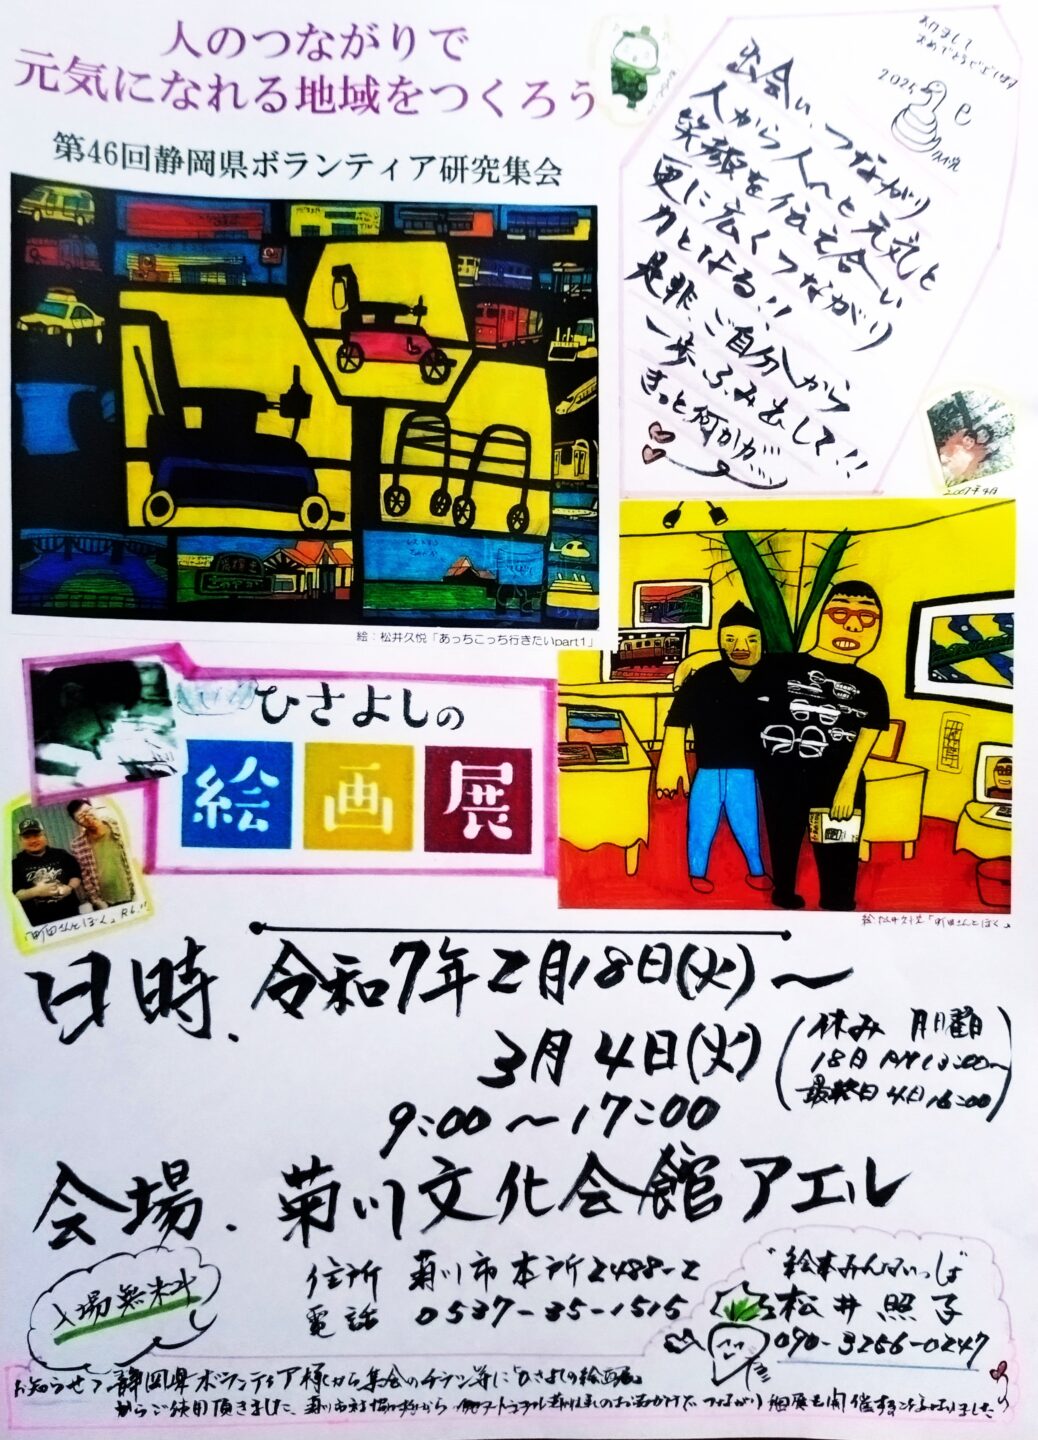 人のつながりで
元気になれる地域をつくろう
第46回静岡県ボランティア研究集会
あけまして
おめでとうございます
2025
巳
出会い、つながり
人から人へと元気と
笑顔を伝え合い
更に広くつながり
力となる!!
是非、ご自分から
一歩ふみ出して!!
きっと何かが…
2007年4月
絵：松井久悦「あっちこっち行きたいpart1」
ひさよしの
絵画展
「町田さんとぼく」R6.!!
絵 松井久悦「町田さんとぼく」
日時. 令和7年2月18日(火)〜
3月4日(火)
9:00〜17:00
(休み 月曜日
18日 PM13:00〜
最終日4日16:00)
会場. 菊川文化会館アエル
住所 菊川市本所2488-2
電話 0537-35-1515
入場無料
"絵本みんないっしょ"
松井照子
090-3256-0247
お知らせ♪ 静岡県ボランティア様から集会のチラシ等に「ひさよしの絵画展」
からご使用頂きました、